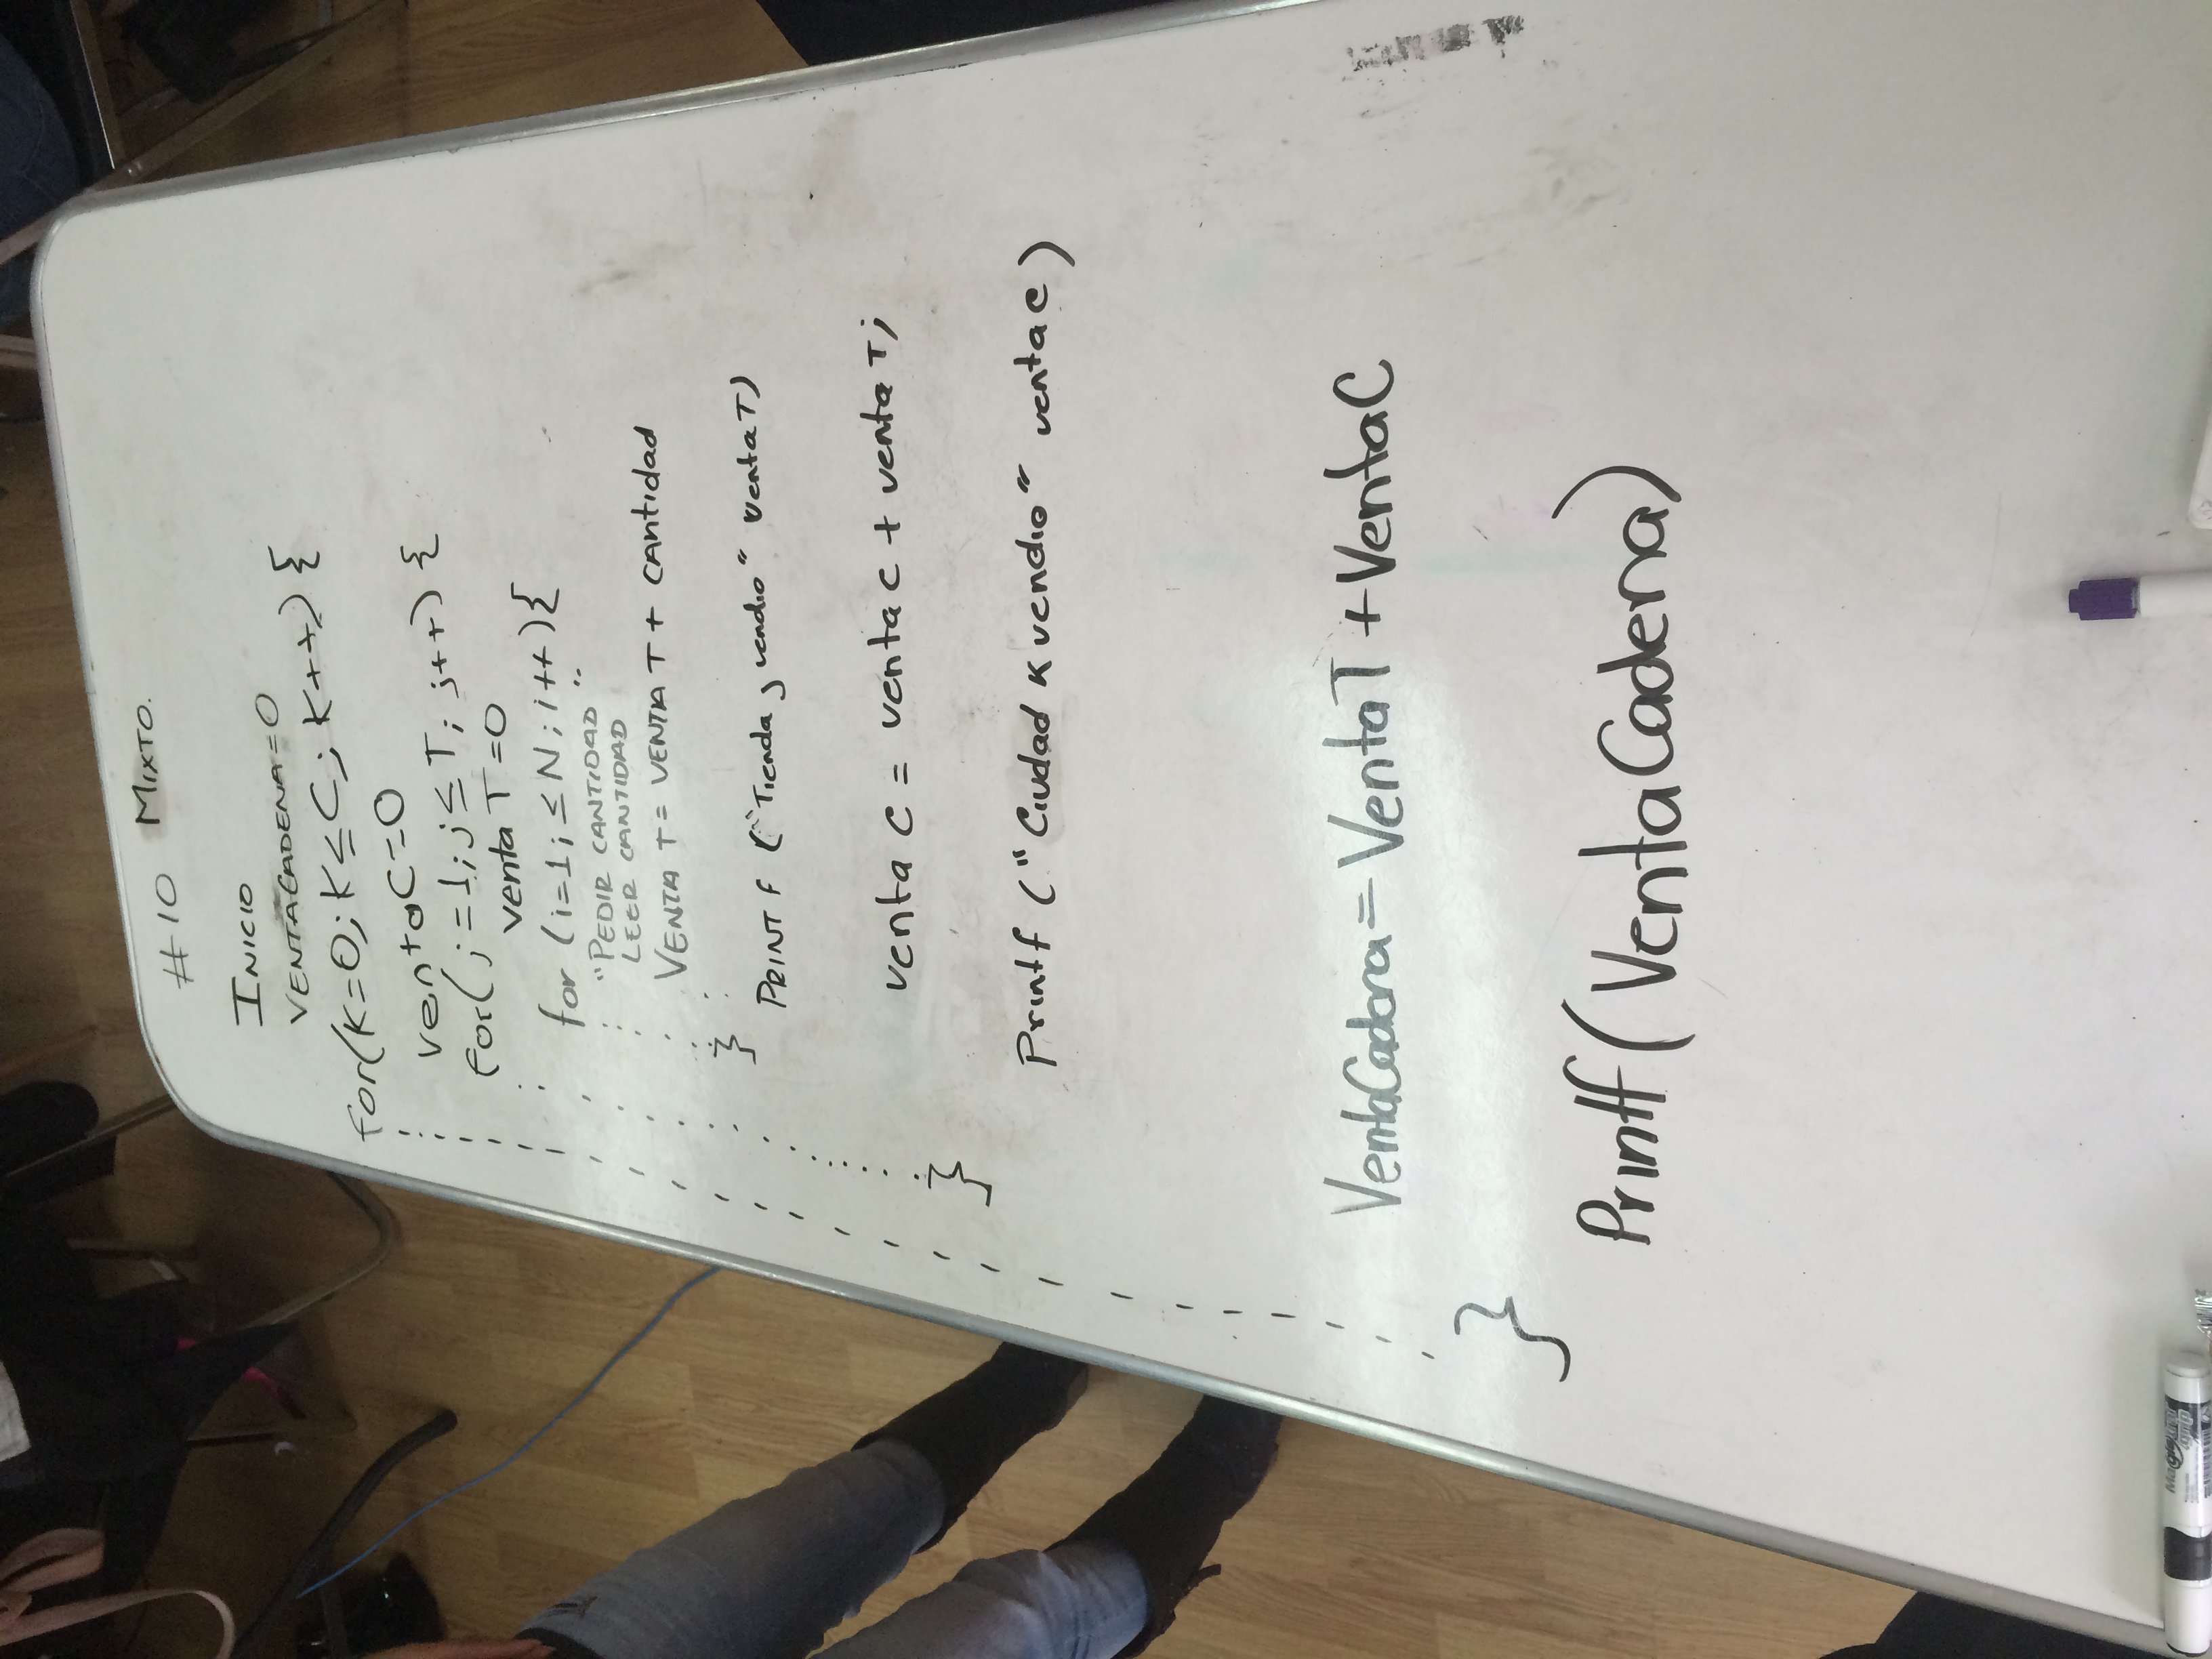 #10 MIXTO.
INICIO
VENTACADENA=0
for(K=0; K≤C; K++) {
ventaC=0
for(j=1; j≤T; j++) {
venta T=0
for (i=1; i≤N; i++){
"PEDIR CANTIDAD"
LEER CANTIDAD
VENTA T= VENTA T + CANtidad
}
PRINT f ("Tienda j vendio" ventaT)
venta C = venta c + venta T;
}
Printf ("Ciudad K vendio" venta c)
VentaCadena= VentaT + VentaC
}
Printf (VentaCadena)